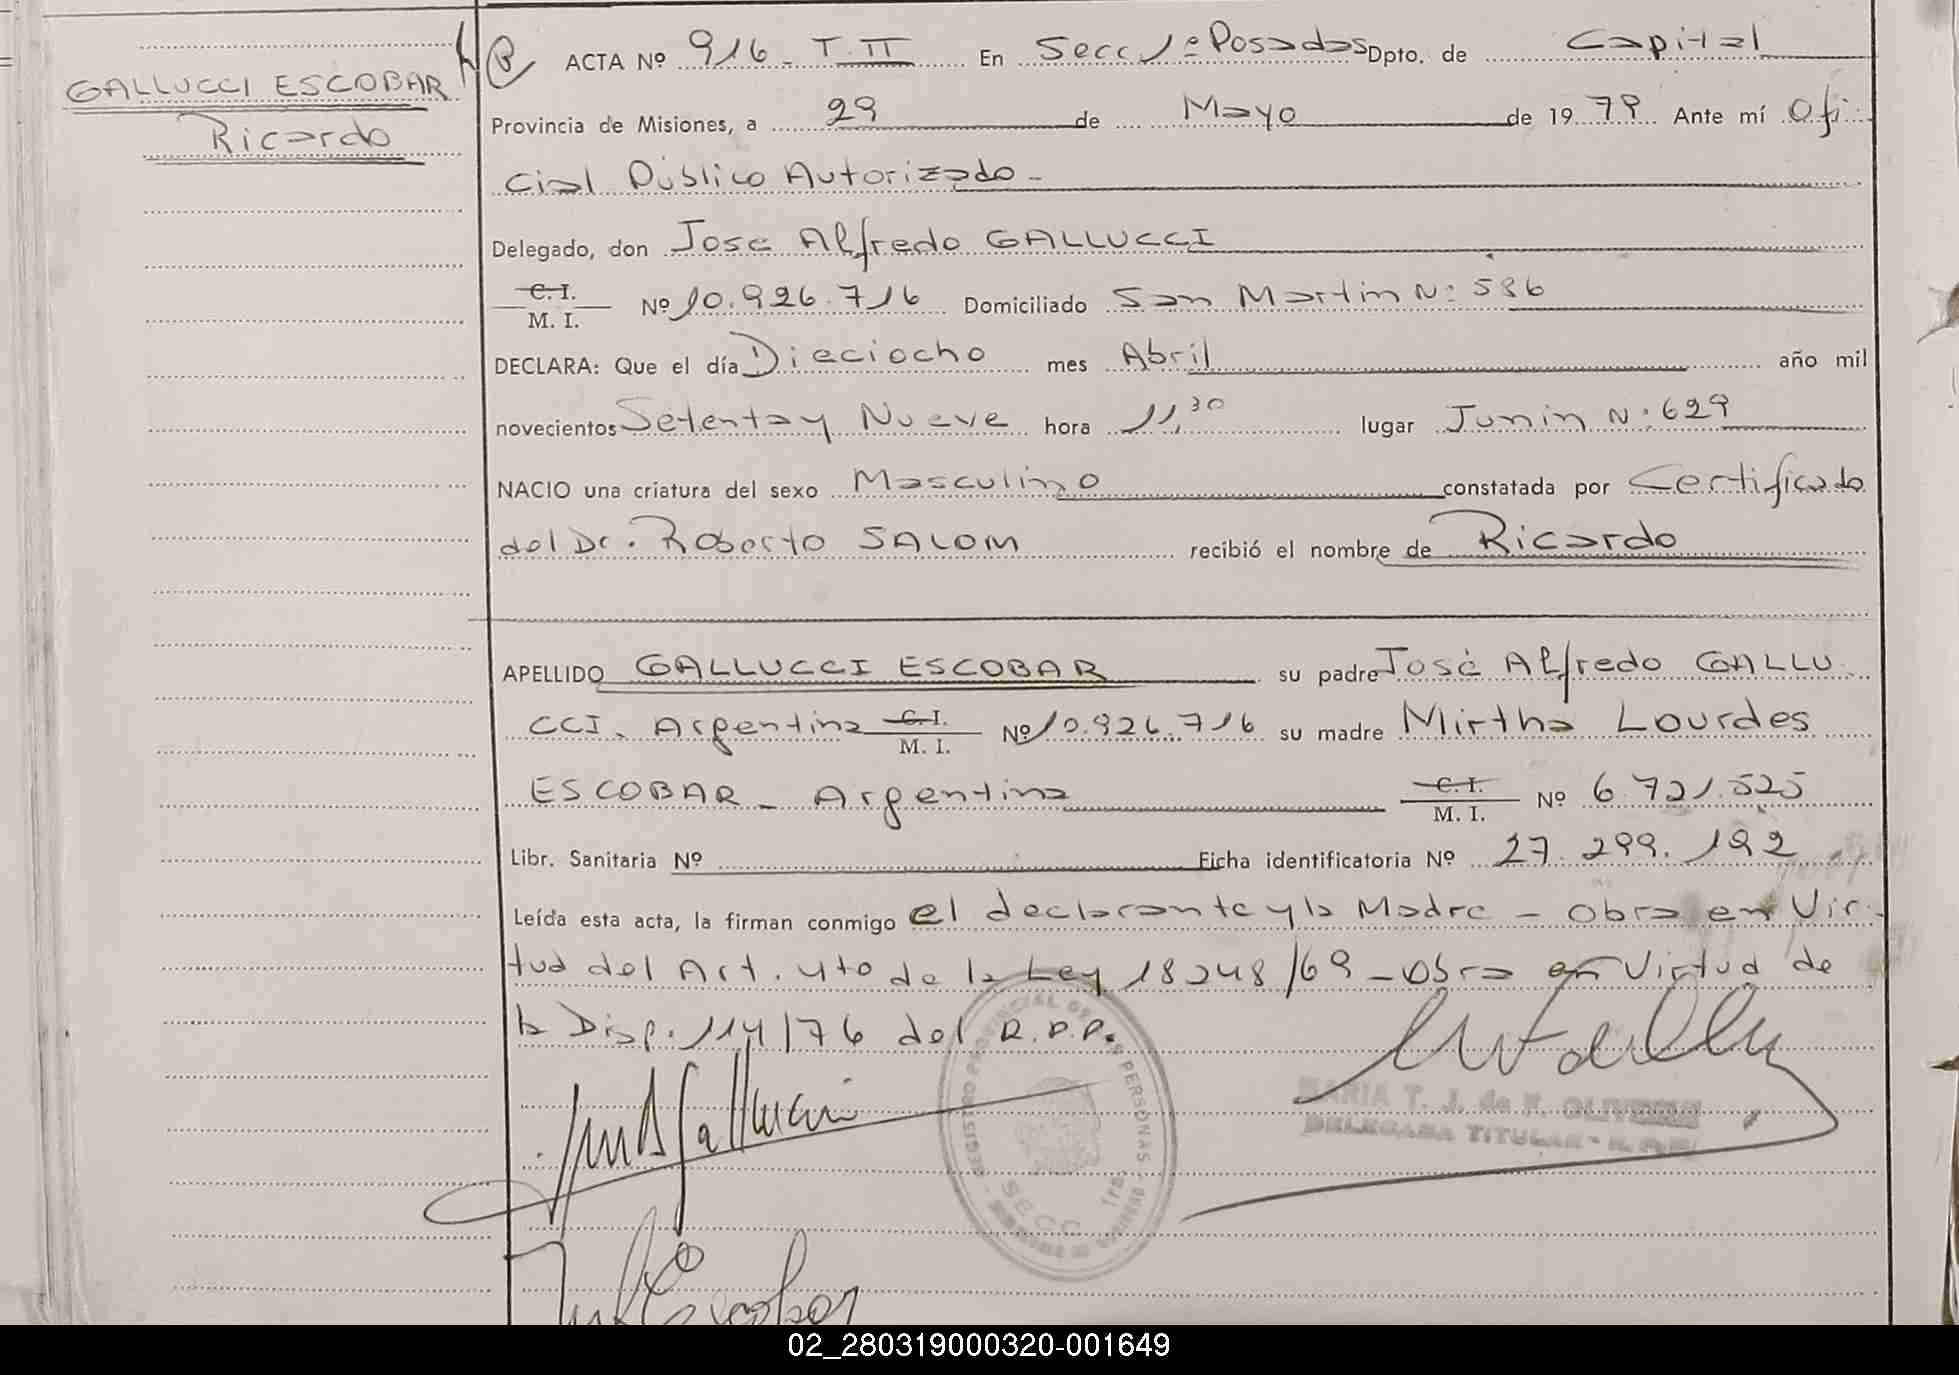 GALLUCCI ESCOBAR
Ricardo
ACTA Nº 916 - T. II En Secc 1ª Posadas Dpto. de Capital
Provincia de Misiones, a 29 de Mayo de 1979 Ante mí Ofi
cial Público Autorizado -
Delegado, don José Alfredo GALLUCCI
C.I.
M. I. Nº 10.926.716 Domiciliado San Martín Nº 586
DECLARA: Que el día Dieciocho mes Abril año mil
novecientos Setenta y Nueve hora 11,30 lugar Junín Nº 629
NACIO una criatura del sexo Masculino constatada por Certificado
del Dr. Roberto SALOM recibió el nombre de Ricardo
APELLIDO GALLUCCI ESCOBAR su padre José Alfredo GALLU
CCI. Argentina C.I. M. I. Nº 10.926.716 su madre Mirtha Lourdes
ESCOBAR - Argentina C.I. M. I. Nº 6 721.525
Libr. Sanitaria Nº Ficha identificatoria Nº 27.299.192
Leída esta acta, la firman conmigo el declarante y la Madre - Obra en Vir-
tud del Art. 4to de la Ley 18248/69 - Obra en Virtud de
la Disp. 114/76 del R.P.P.
REGISTRO PROVINCIAL DE LAS PERSONAS
SECC. 1ra.
MARIA T. J. de F. OLIVEIRA
DELEGADA TITULAR - R.P.P.
Gallucci
Escobar
02_280319000320-001649